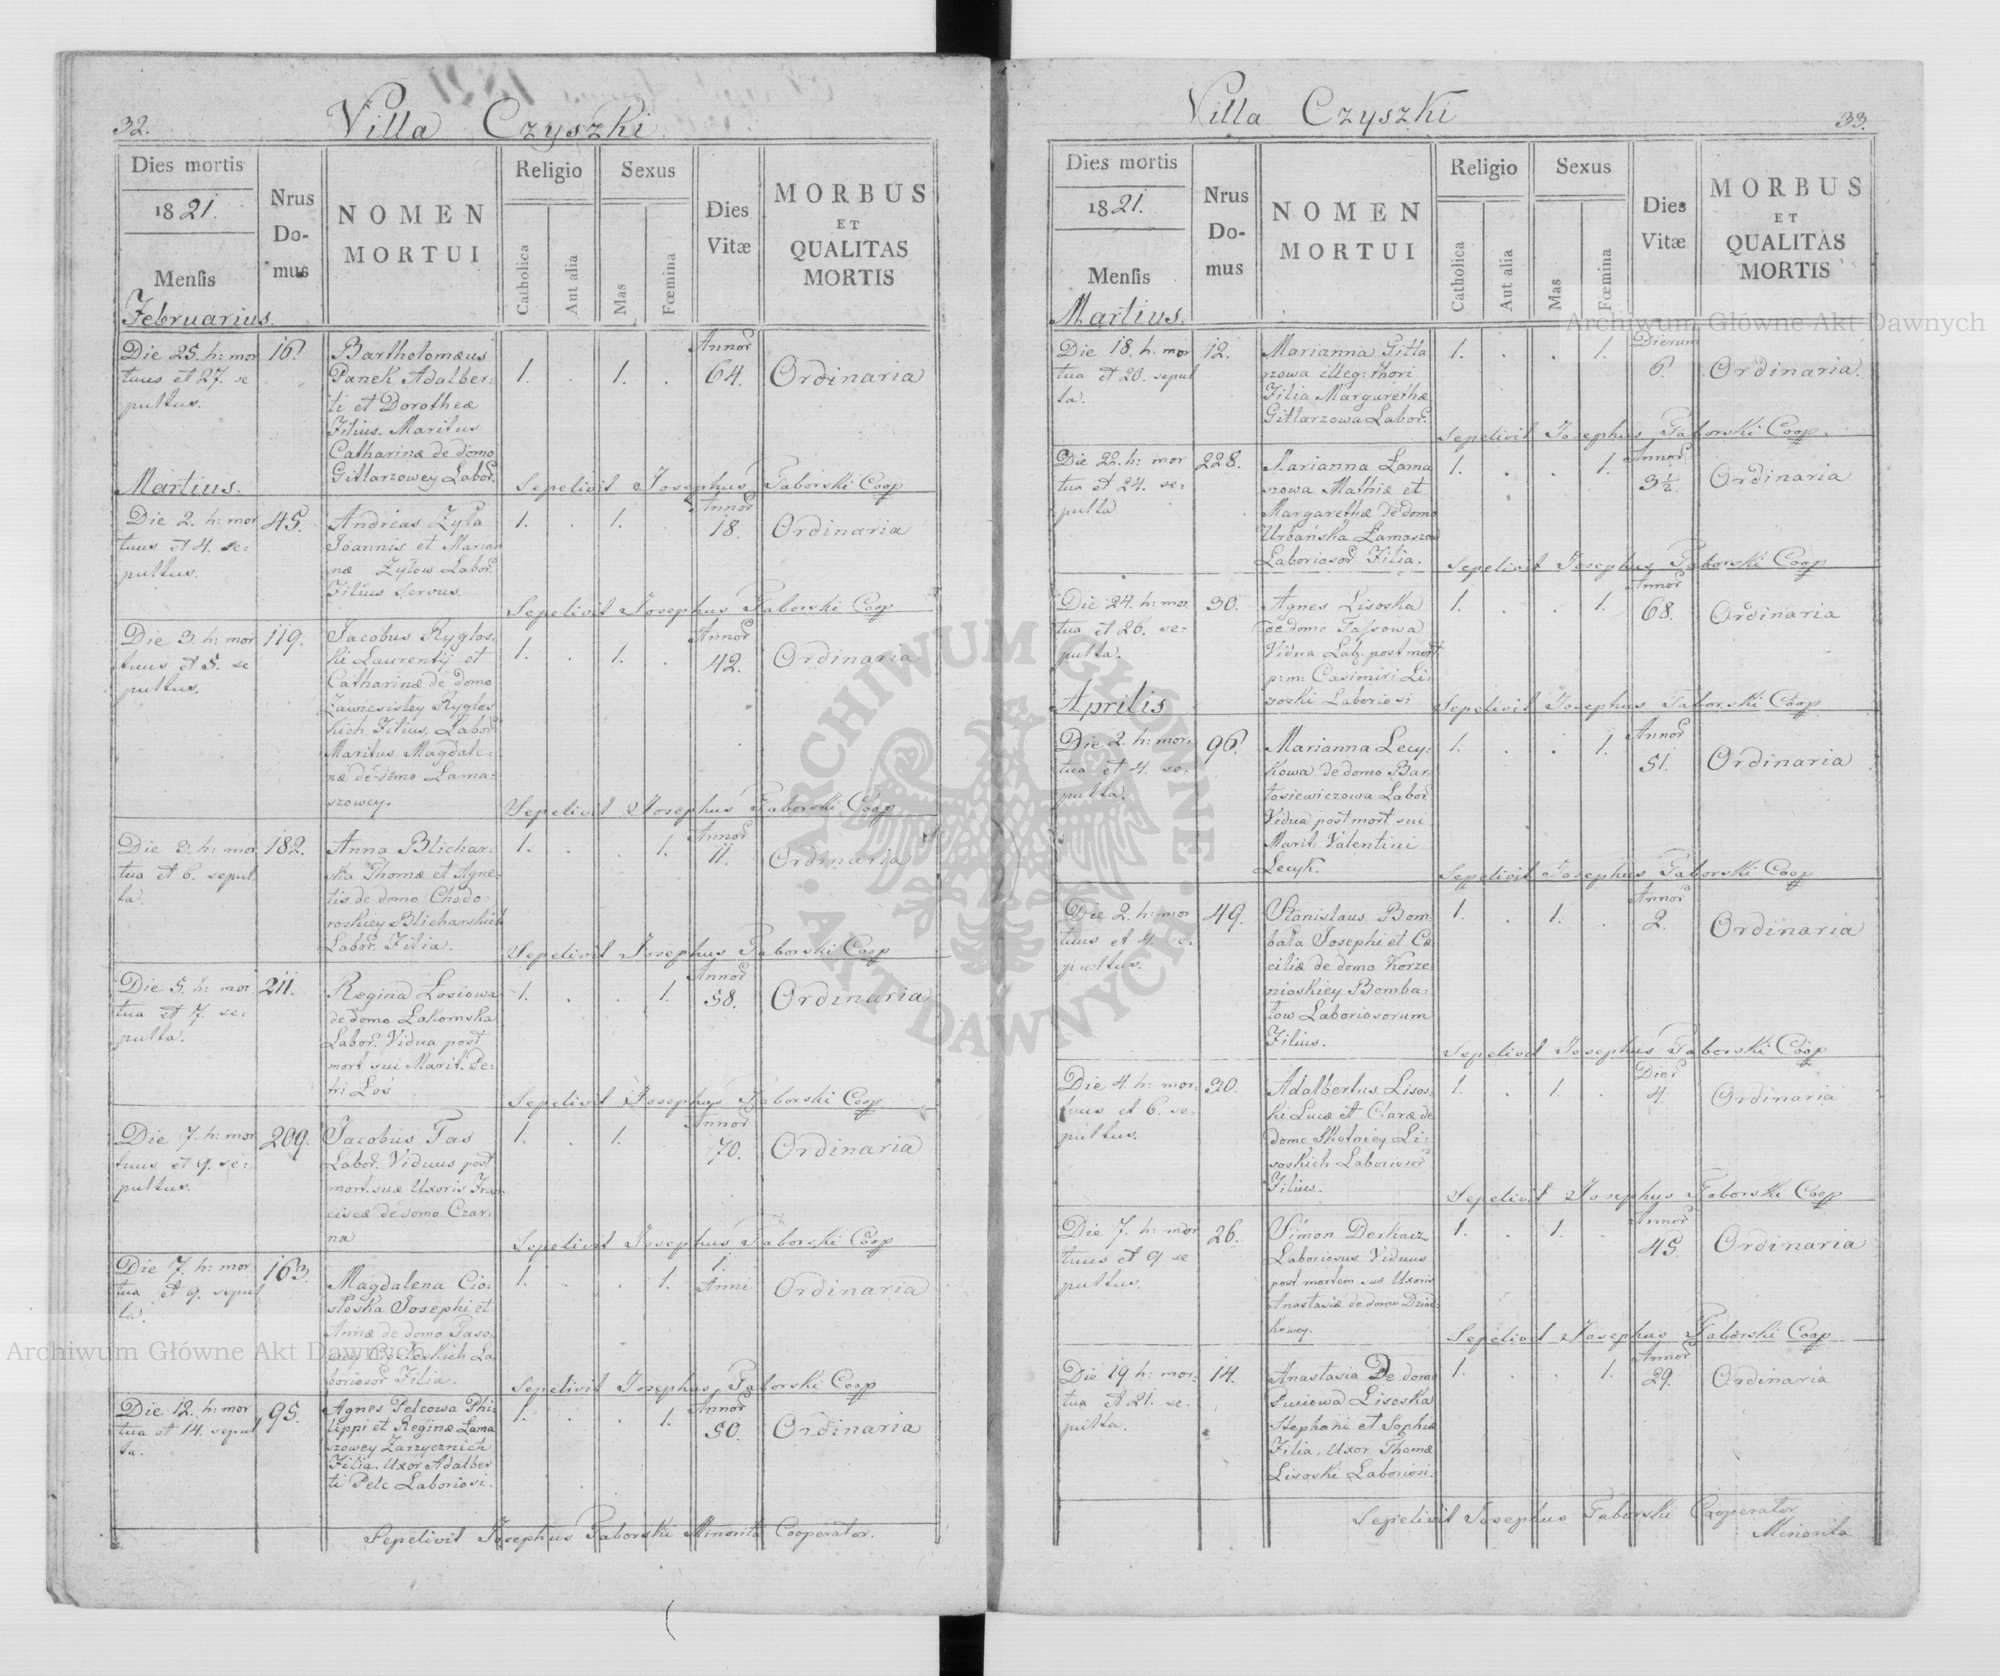 32.
Villa Czyszki
Dies mortis
1821.
Mensis
Februarius.
Nrus
Do-
mus
NOMEN
MORTUI
Religio
Catholica
Aut alia
Sexus
Mas
Fœmina
Dies
Vitæ
MORBUS
ET
QUALITAS
MORTIS
Die 25. h: mor
tuus et 27. se
pultus.
16.
Bartholomæus
Panek Adalber:
ti et Dorotheæ
Filius. Maritus
Catharinæ de domo
Gitlarzowey Labor.
1. . 1. .
Annor
64.
Ordinaria
Sepelivit Josephus Taborski Coop
Martius.
Die 2. h: mor
tuus et 4. se:
pultus.
45.
Andreas Zyła
Joannis et Marian
næ Zyłow Labor.
Filius Servus.
1. . 1. .
Annor
18.
Ordinaria
Sepelivit Josephus Taborski Coop
Die 3. h: mor
tuus et 5. se
pultus.
119.
Jacobus Ryglos
ki Laurentij et
Catharinæ de domo
Zawiesistey Ryglos
kich Filius, Labor
Maritus Magdale:
næ de domo Łama:
szowey.
1. . 1. .
Annor
42.
Ordinaria
Sepelivit Josephus Taborski Coop
Die 3. h: mor
tua et 6. sepul
ta.
182.
Anna Blichar:
ska Thomæ et Agne:
tis de domo Chodo
roskiey Blicharskich
Labor. Filia.
1. . . 1.
Annor
11.
Ordinaria
Sepelivit Josephus Taborski Coop
Die 5. h: mor
tua et 7. se:
pulta.
211.
Regina Łosiowa
de domo Łakomska
Labor. Vidua post
mort sui Marit. Pe:
tri Łoś
1. . . 1.
Annor
58.
Ordinaria
Sepelivit Josephus Taborski Coop
Die 7. h: mor
tuus et 9. se:
pultus.
209.
Jacobus Tas
Labor. Viduus post
mort. suæ Uxoris Fran
ciscæ de domo Czar:
na
1. . 1. .
Annor
70.
Ordinaria
Sepelivit Josephus Taborski Coop
Die 7. h: mor
tua et 9. sepul
ta.
163.
Magdalena Cio:
stoska Josephi et
Annæ de domo Taso:
wey Ciostoskich La
boriosor Filia.
1. . . 1.
1.
Anni
Ordinaria
Sepelivit Josephus Taborski Coop
Die 12. h: mor
tua et 14. sepul
ta.
95.
Agnes Pelcowa Phi
lippi et Reginæ Łama
szowey Zarzycznich
Filia. Uxor Adalber
ti Pelc Laboriosi.
1. . . 1.
Annor
50.
Ordinaria
Sepelivit Josephus Taborski Minorita Cooperator.
Villa Czyszki
33.
Dies mortis
1821.
Mensis
Martius.
Nrus
Do-
mus
NOMEN
MORTUI
Religio
Catholica
Aut alia
Sexus
Mas
Fœmina
Dies
Vitæ
MORBUS
ET
QUALITAS
MORTIS
Die 18. h. mor
tua et 20. sepul
ta.
12.
Marianna Gitla
rzowa illeg: thori
Filia Margarethæ
Gitlarzowa Labor.
1. . . 1.
Dierum
6.
Ordinaria.
Sepelivit Josephus Taborski Coop.
Die 22. h: mor
tua et 24. se:
pulta
228.
Marianna Łama
szowa Mathiæ et
Margarethæ de domo
Urbańska Łamaszow
Laboriosor Filia.
1. . . 1.
Annor
3 1/2.
Ordinaria
Sepelivit Josephus Taborski Coop
Die 24. h: mor
tua et 26. se:
pulta.
30.
Agnes Lisoska
de domo Tassowa
Vidua Lab. post mort
p: m: Casimiri Li:
soski Laboriosi
1. . . 1.
Annor
68.
Ordinaria
Sepelivit Josephus Taborski Coop
Aprilis
Die 2. h: mor:
tua et 4. se:
pulta.
96.
Marianna Lecy:
kowa de domo Bar:
tosiewiczowa Labor
Vidua post mort sui
Marit. Valentini
Lecyk.
1. . . 1.
Annor
51.
Ordinaria
Sepelivit Josephus Taborski Coop
Die 2. h: mor
tuus et 4. se
pultus.
49.
Stanislaus Bom:
bała Josephi et Cæ
ciliæ de domo Korze
nioskiey Bomba:
łow Laboriosorum
Filius.
1. . 1. .
Annor
2.
Ordinaria
Sepelivit Josephus Taborski Coop
Die 4. h: mor:
tuus et 6. se:
pultus.
30.
Adalbertus Lisos:
ki Lucæ et Claræ de
domo Skotniey Li:
soskich Laboriosor
Filius.
1. . 1. .
Dies
4.
Ordinaria
Sepelivit Josephus Taborski Coop
Die 7. h: mor
tuus et 9 se
pultus.
26.
Simon Derkacz
Laboriosus Viduus
post mortem suæ Uxoris
Anastasiæ de domo Dziad:
kowey.
1. . 1. .
Annor
45.
Ordinaria
Sepelivit Josephus Taborski Coop
Die 19 h: mor:
tua et 21. se:
pulta.
14.
Anastasia De domo
Puciowa Lisoska
Stephani et Sophiæ
Filia, Uxor Thomæ
Lisoski Laboriosi.
1. . . 1.
Annor
29.
Ordinaria
Sepelivit Josephus Taborski Cooperator
Minorita
Archiwum Główne Akt Dawnych
Archiwum Główne Akt Dawnych
ARCHIWUM GŁÓWNE AKT DAWNYCH